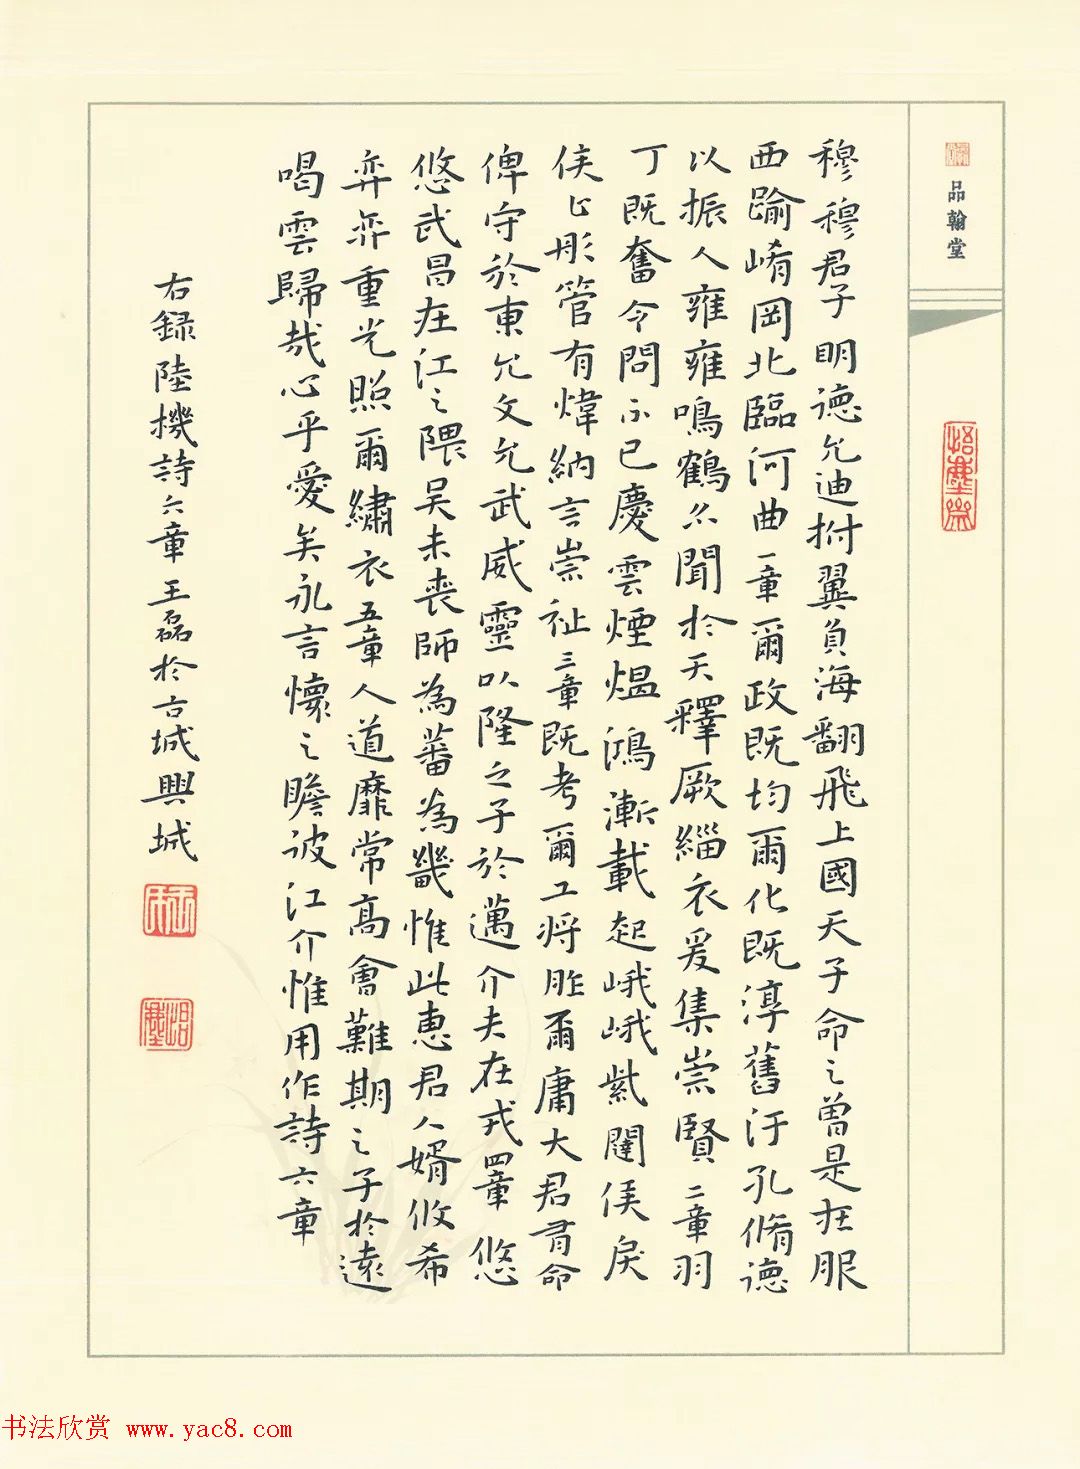 品翰堂
穆穆君子明德允迪拊翼負海翻飛上國天子命之曾是在服
西踰崤岡北臨河曲一章爾政既均爾化既淳舊汙孔脩德
以振人雍雍鳴鶴亦聞於天釋厥緇衣爰集崇賢二章羽
丁既奮令問不已慶雲煙熅鴻漸載起峨峨紫闥侯戾
侯止彤管有煒納言崇祉三章既考爾工將胙爾庸大君有命
俾守於東允文允武威靈以隆之子於邁介夫在戎四章悠
悠武昌在江之隈吴未喪師為蕃為畿惟此惠君人婿攸希
弈弈重光照爾繡衣五章人道靡常高會難期之子於遠
喝雲歸哉心乎愛矣永言懷之瞻彼江介惟用作詩六章
右録陸機詩六章王磊於古城興城
书法欣赏 www.yac8.com